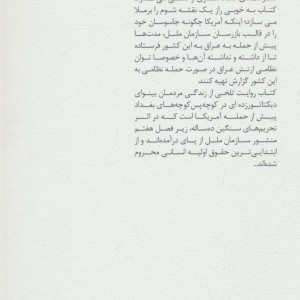 کتاب به خوبی راز یک نقشه شوم را برملا
می سازد؛ اینکه آمریکا چگونه جاسوسان خود
را در قالب بازرسان سازمان ملل، مدت‌ها
پیش از حمله به عراق به این کشور فرستاده
تا از داشته و نداشته آن‌ها و خصوصا توان
نظامی ارتش عراق در صورت حمله نظامی به
این کشور گزارش تهیه کنند.
کتاب روایت تلخی از زندگی مردمان بینوای
دیکتاتورزده ای در کوچه‌پس‌کوچه‌های بغداد
پیش از حمله آمریکا است که در اثر
تحریم‌های سنگین ده‌ساله، زیر فصل هفتم
منشور سازمان ملل از پای درآمده‌اند، و از
ابتدایی‌ترین حقوق اولیه انسانی محروم
شده‌اند..